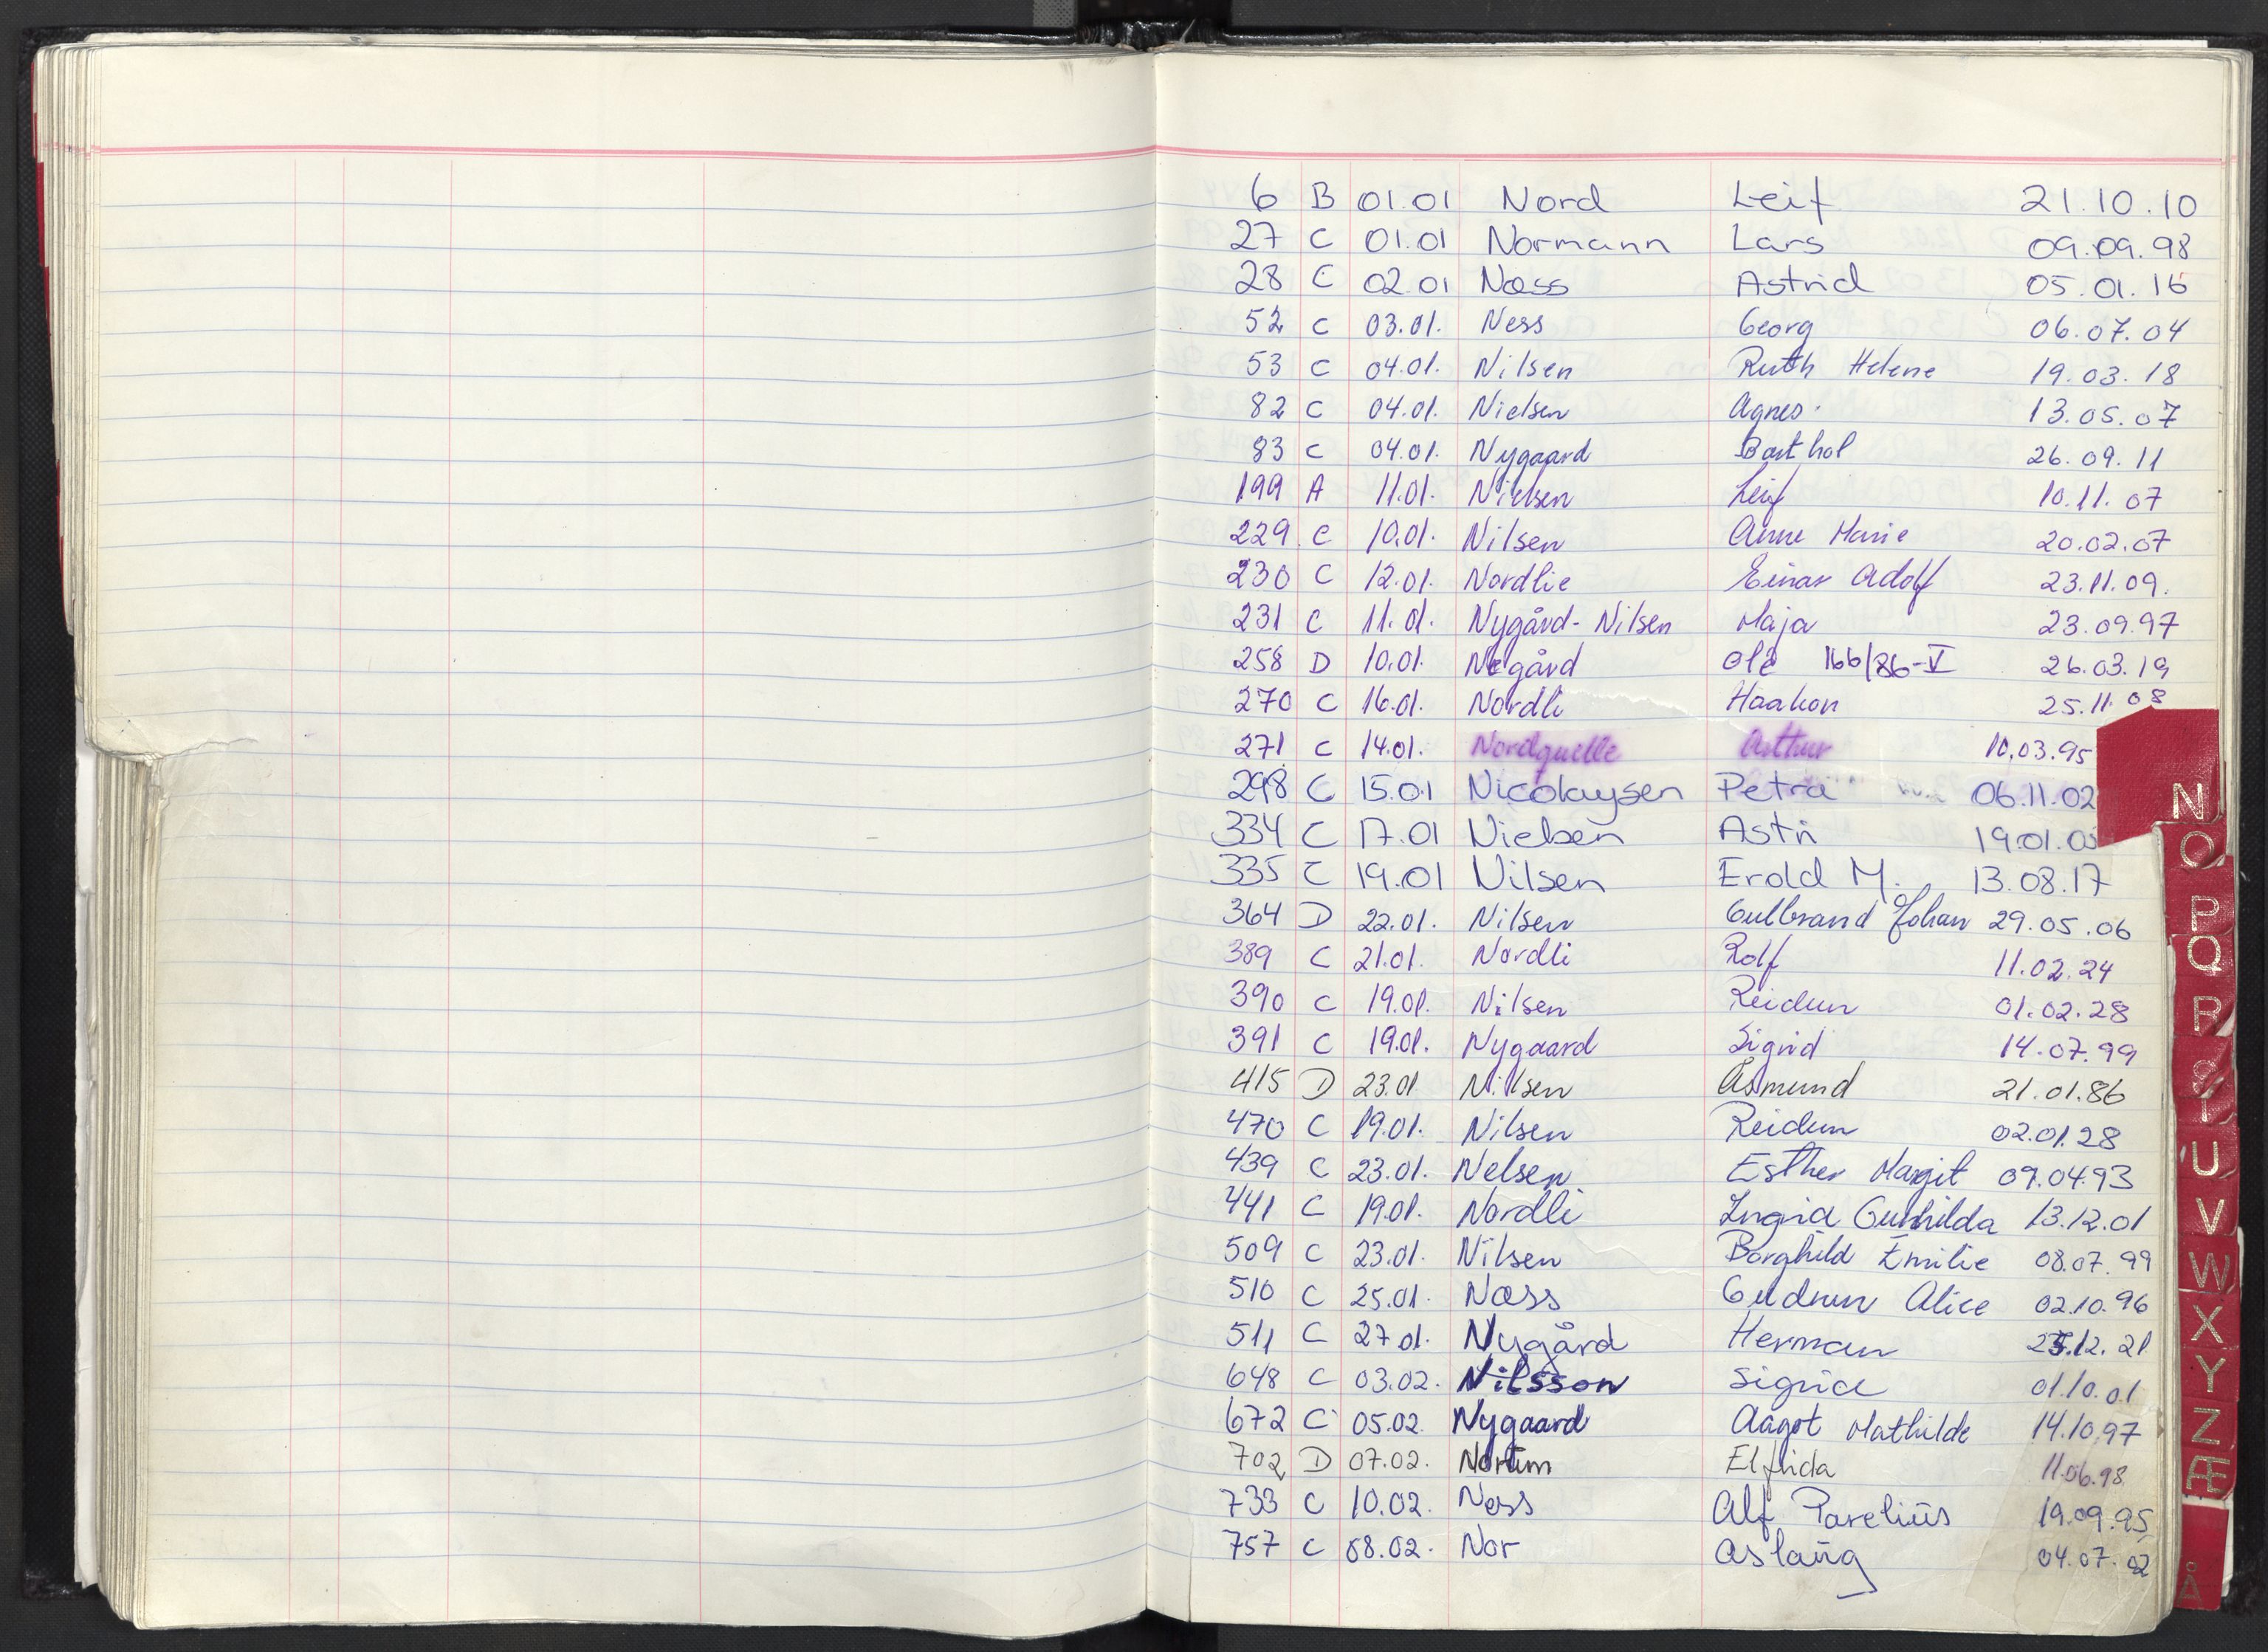 6 B 01.01 Nord Leif 21.10.10
27 C 01.01 Normann Lars 09.09.98
28 C 02.01 Næss Astrid 05.01.16
52 C 03.01. Ness Georg 06.07.04
53 C 04.01. Nilsen Ruth Helene 19.03.18
82 C 04.01. Nielsen Agnes. 13.05.07
83 C 04.01. Nygaard Barthol 26.09.11
199 A 11.01. Nielsen Leif 10.11.07
229. C 10.01. Nilsen Anne Marie 20.02.07
230 C 12.01. Nordlie Einar Adolf 23.11.09.
231 C 11.01. Nygård-Nilsen Maja 23.09.97
258 D 10.01. Negård Ole 166/86-V 26.03.19
270 C 16.01. Nordli Haakon 25.11.08
271 C 14.01. Nordquelle Arthur 10.03.95
298 C 15.01 Nicolaysen Petra 06.11.02
334 C 17.01 Nielsen Astri 19.01.03
335 C 19.01 Nilsen Erold M. 13.08.17
364 D 22.01. Nilsen Gulbrand Johan 29.05.06
389 C 21.01. Nordli Rolf 11.02.24
390 C 19.01. Nilsen Reidun 01.02.28
391 C 19.01. Nygaard Sigrid 14.07.99
415 D 23.01 Nilsen Åsmund 21.01.86
470 C 19.01. Nilsen Reidun 02.01.28
439 C 23.01. Nelsen Esther Margit 09.04.93
441 C 19.01. Nordli Ingrid Gunhilda 13.12.01
509 C 23.01. Nilsen Borghild Emilie 08.07.99
510 C 25.01. Næss Gudrun Alice 02.10.96
511 C 27.01. Nygård Herman 25.12.21
648 C 03.02. Nilsson Sigrid 01.10.01
672 C 05.02. Nygaard Aagot Mathilde 14.10.97
702 D 07.02. Nortum Elfrida 11.06.98
733 C 10.02. Ness Alf Parelius 19.09.95
757 C 08.02. Nor Aslaug 04.07.02
N
O
P
Q
R
S
T
U
V
W
X
Y
Z
Æ
Å